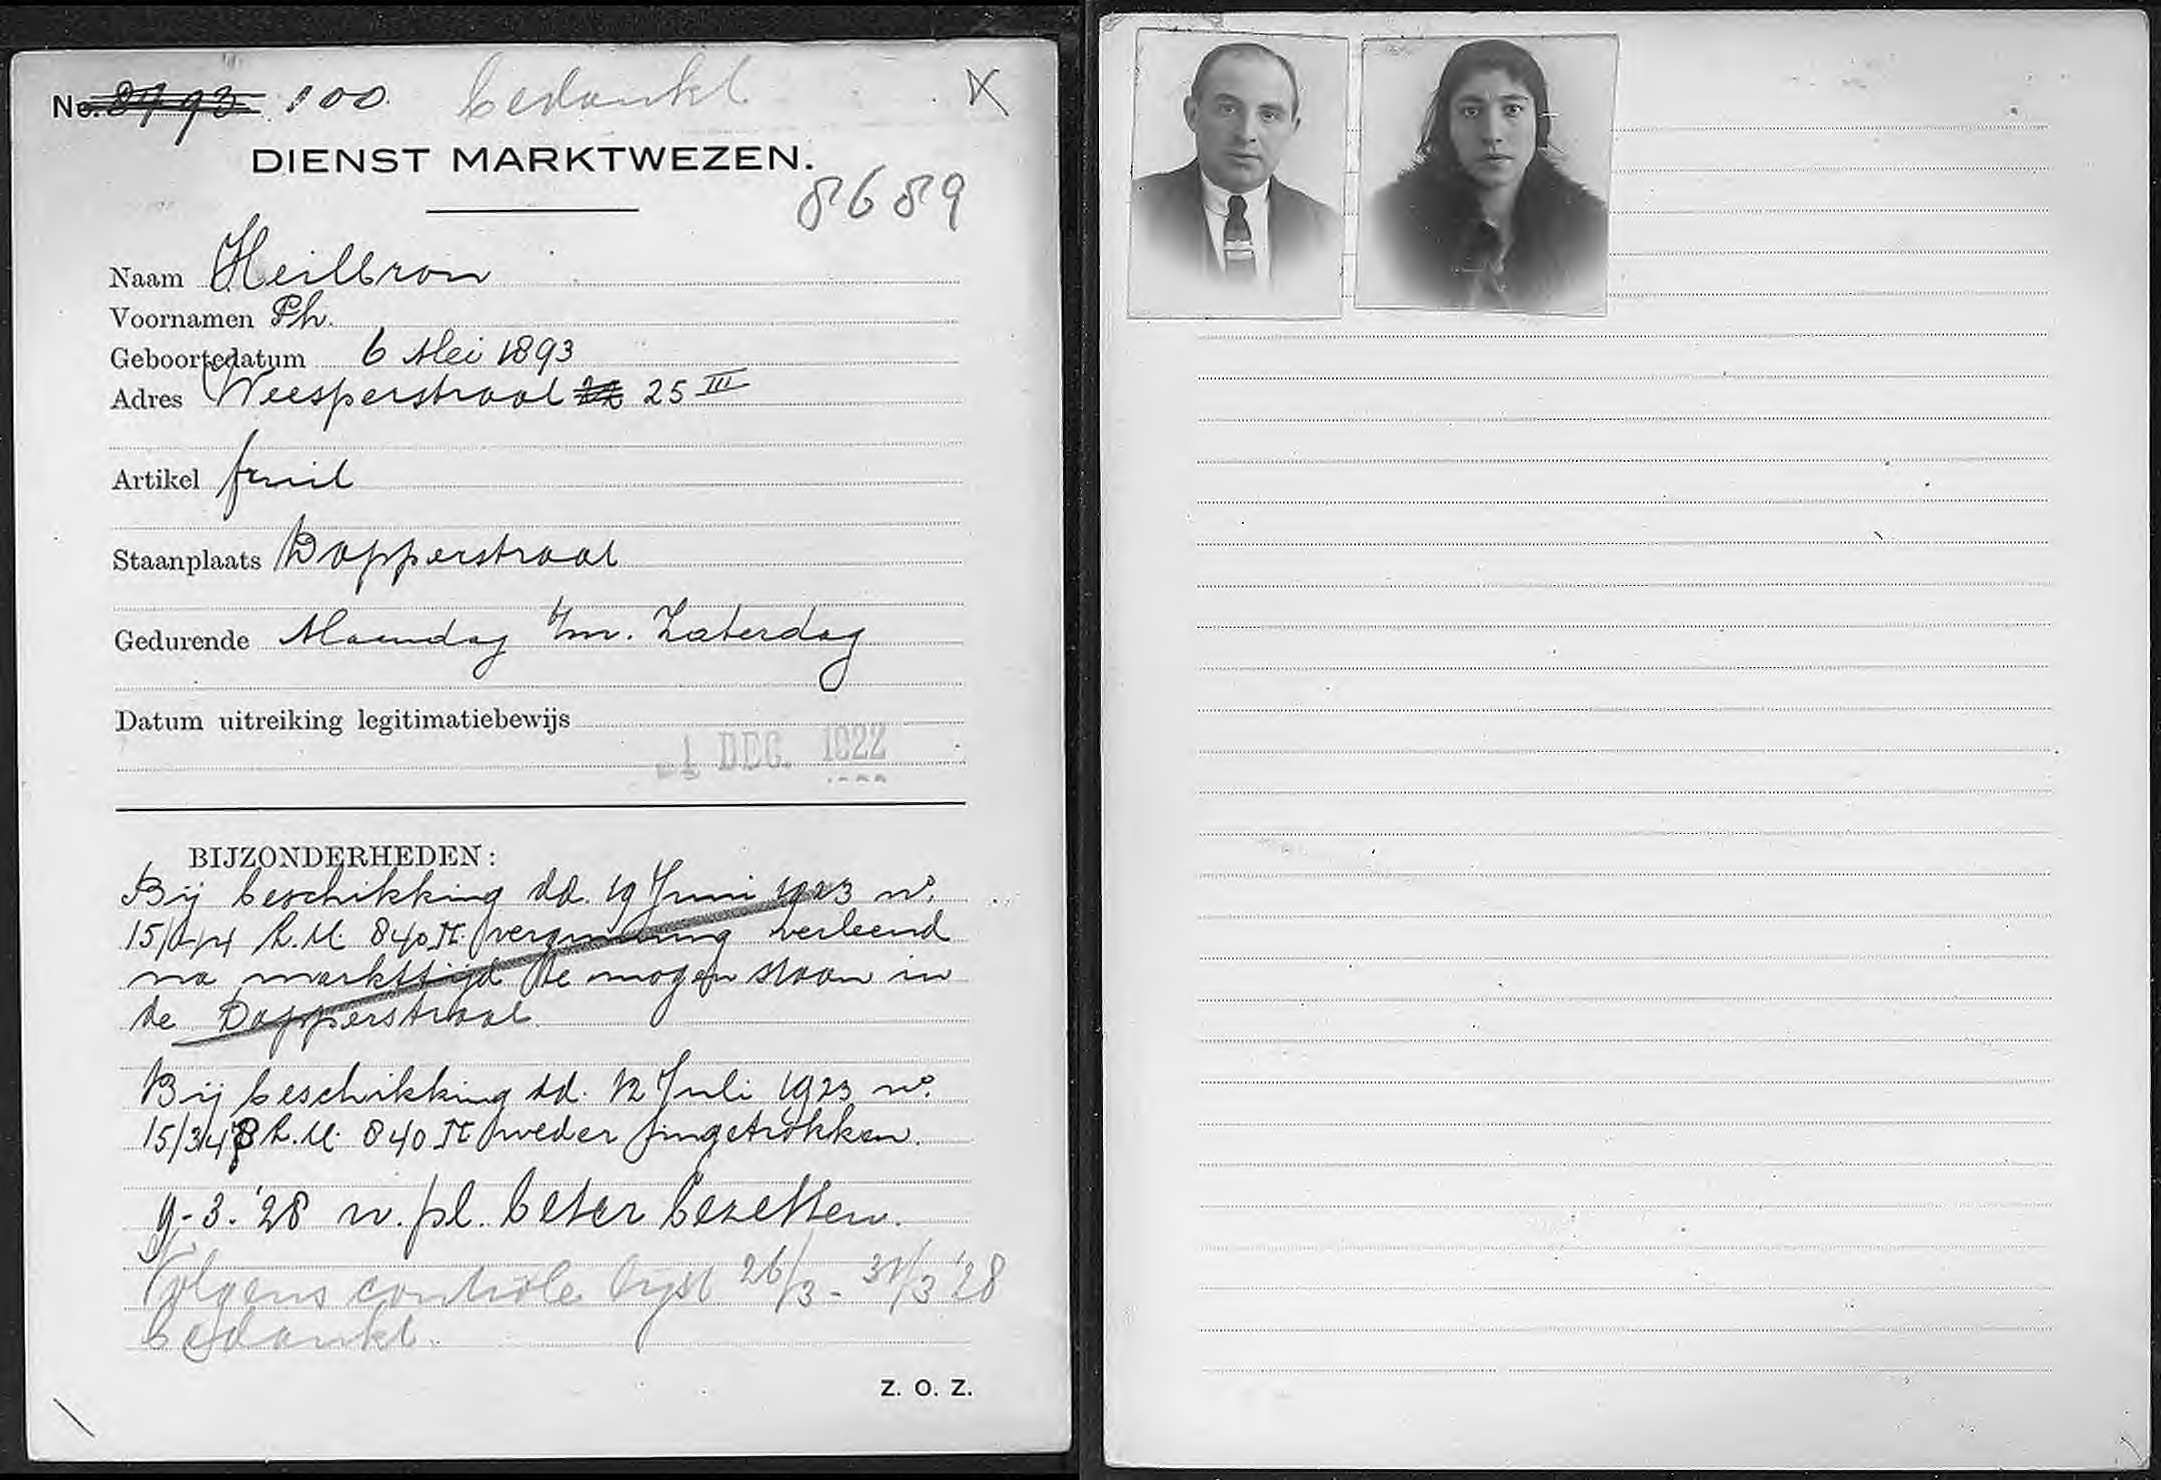 No. 100. bedankt
DIENST MARKTWEZEN.
8689
Naam Heilbron
Voornamen Ph.
Geboortedatum 6 Mei 1893
Adres Weesperstraat 25 III
Artikel fruit
Staanplaats Dapperstraat
Gedurende Maandag t/m. Zaterdag
Datum uitreiking legitimatiebewijs
-1 DEC. 1922
BIJZONDERHEDEN:
Bij beschikking dd. 19 Juni 1923 no.
L.M. 840 vergunning verleend
na markttijd te mogen staan in
de Dapperstraat.
Bij beschikking dd. 12 Juli 1923 no.
15/348 L.M. 840 weder ingetrokken.
9-3-'28 v. pl. beter bezetten.
Volgens contrôle lijst 26/3 - 31/3 '28
bedankt.
Z. O. Z.